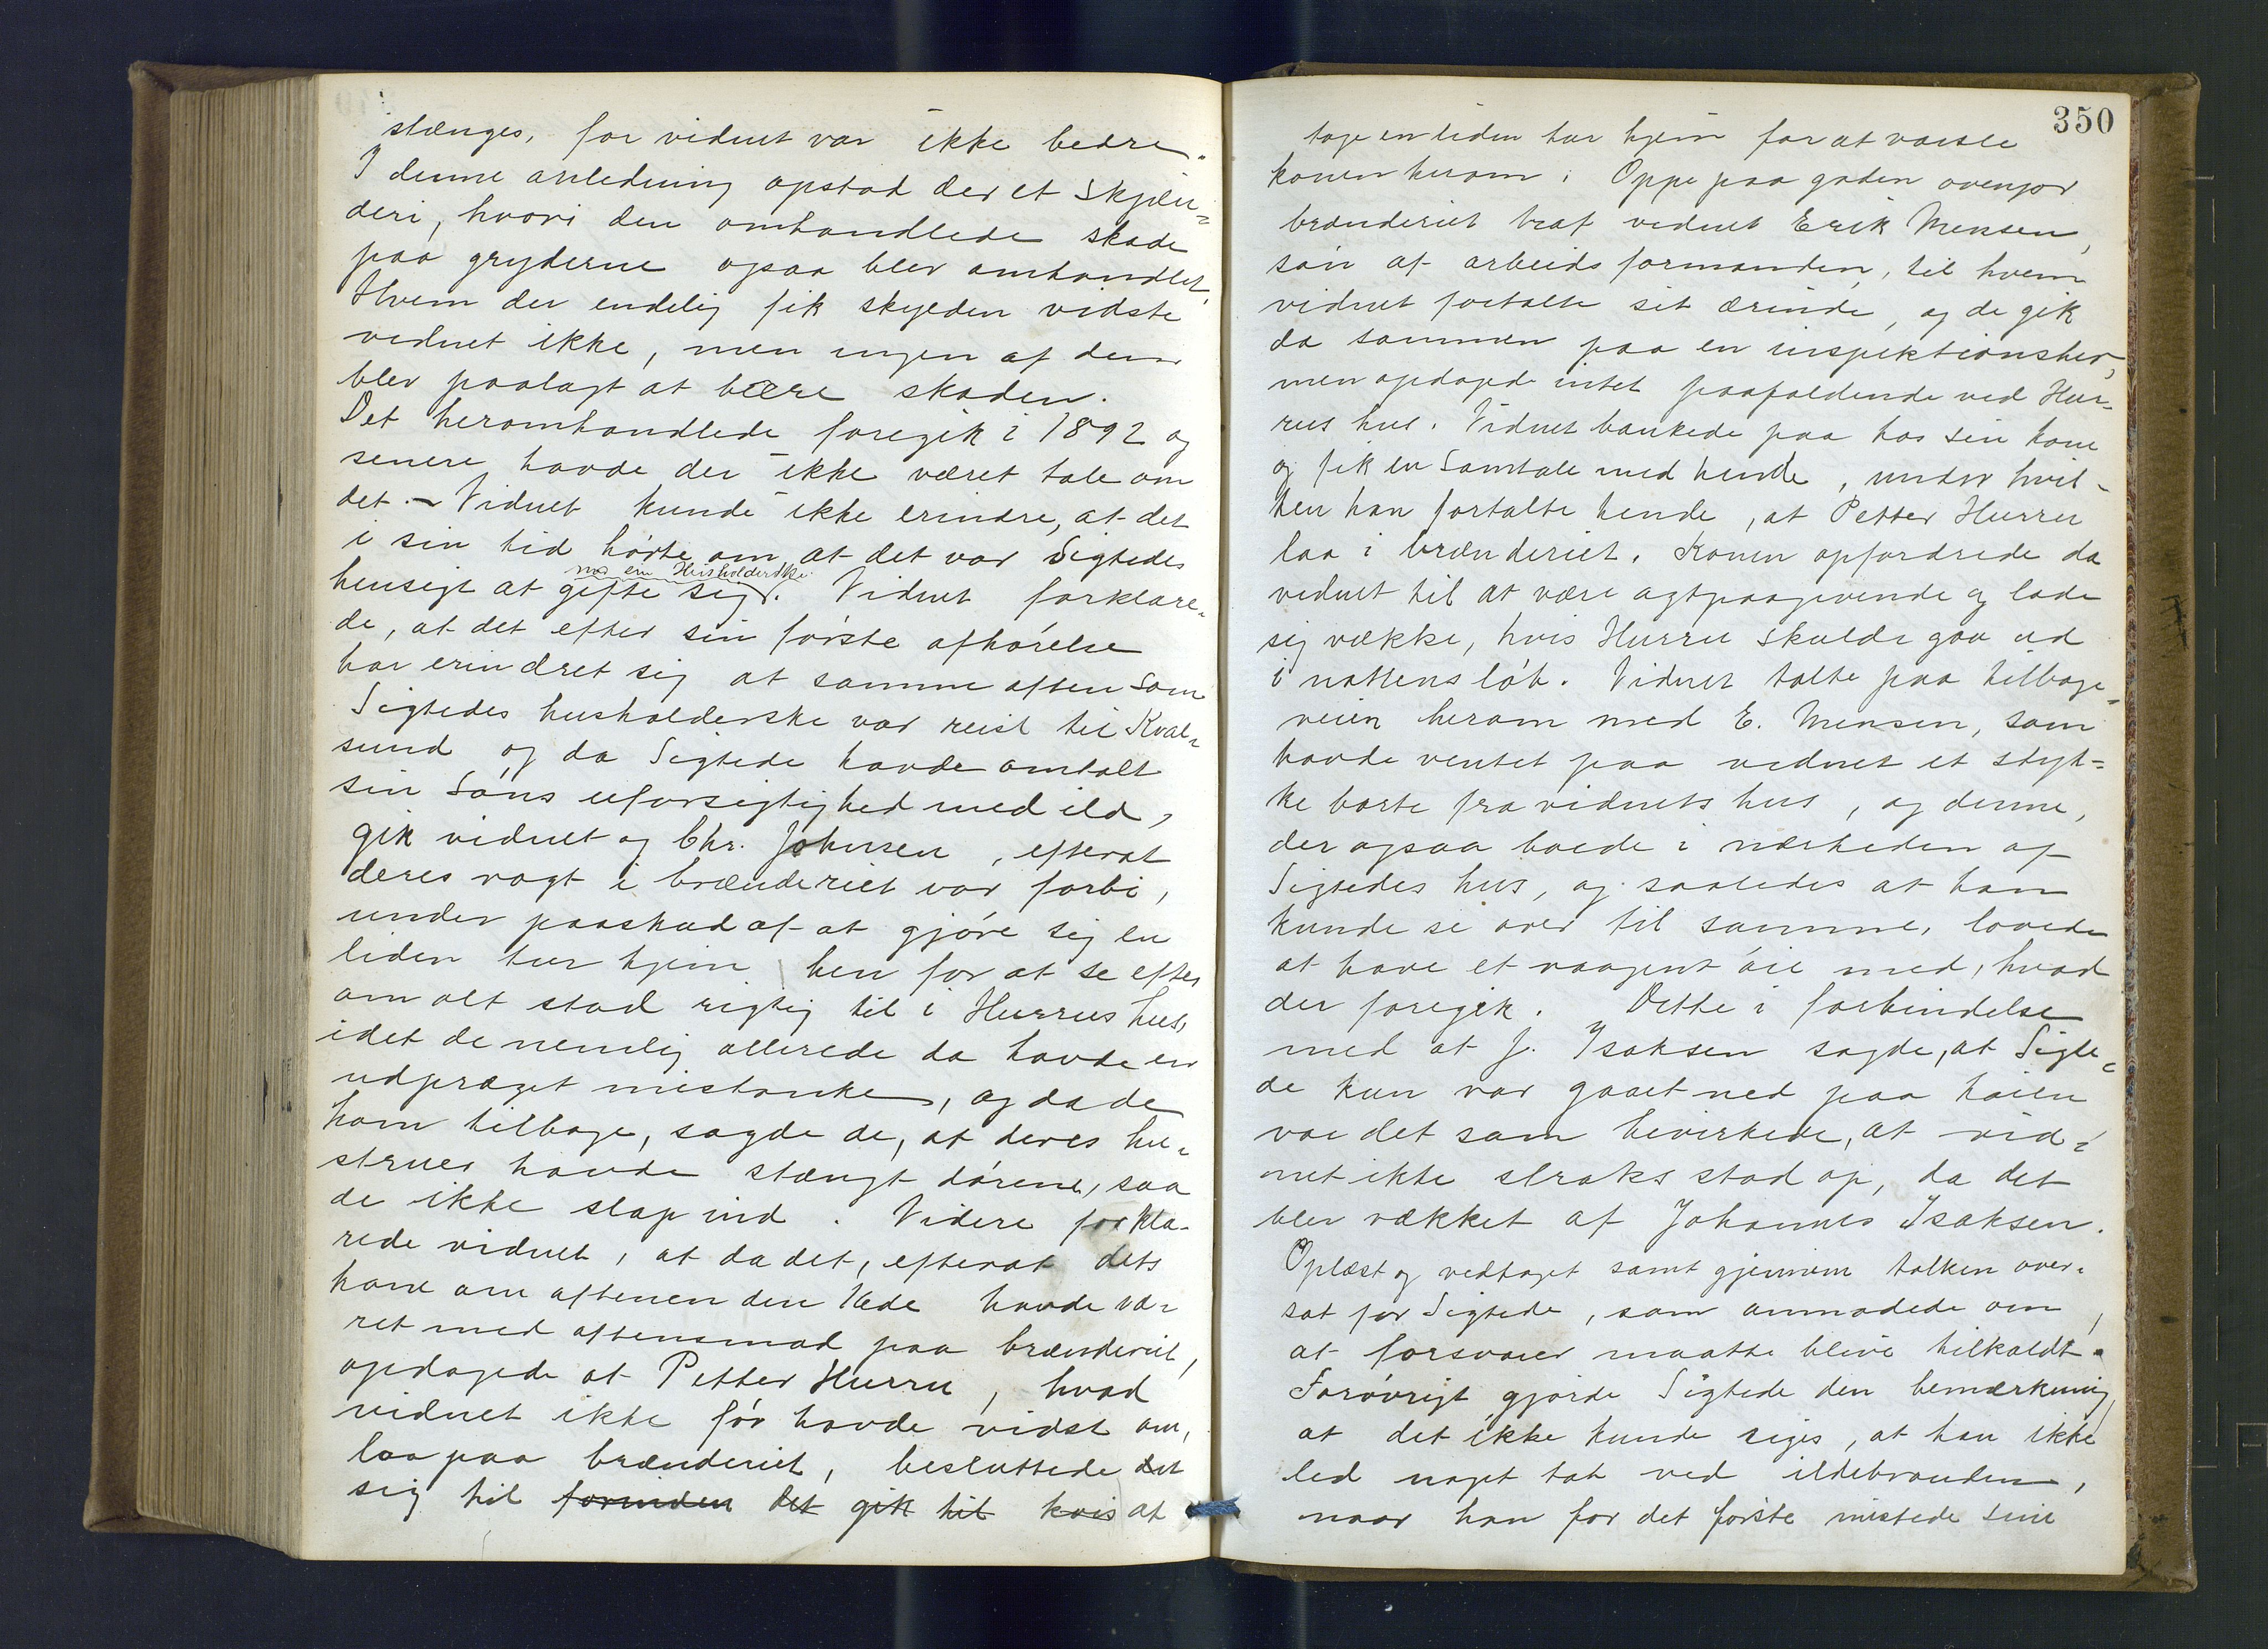 stænges, for vidnet var ikke bedre.
I denne anledning opstod der et Skjæn-
deri, hvori den omhandlede skade
paa gryderne ogsaa blev omhandlet.
Hvem der endelig fik skylden vidste
vidnet ikke, men ingen af dem
blev paalagt at bære skaden.
Det heromhandlede foregik i 1892 og
senere havde der ikke været tale om
det. – Vidnet kunde ikke erindre, at det
i sin tid hørte om at det var Sigtedes
med sin Husholderske
hensigt at gifte sig. Vidnet forklare-
de, at det efter sin første afhørelse
har erindret sig at samme aften som
Sigtedes husholderske var reist til Kval-
sund og da Sigtede havde omtalt
sin Søns uforsigtighed med ild,
gik vidnet og Chr. Johnsen, efterat
deres vagt i brænderiet var forbi,
under paaskud af at gjøre sig en
liden tur hjem hen for at se efter
om alt stod rigtig til i Hurrus hus,
idet de nemlig allerede da havde en
udpræget mistanke, og da de
kom tilbage, sagde de, at deres hu-
struer havde stængt dørene, saa
de ikke slap ind. Videre forkla-
rede vidnet, at da det, efterat dets
kone om aftenen den 16de havde væ-
ret med aftensmad paa brænderiet,
opdagede at Petter Hurru, hvad
vidnet ikke før havde vidst om,
laa paa brænderiet, besluttede det
sig til forinden det gik til hvis at
350
tage en liden tur hjem for at varsle
konen herom. Oppe paa gaden ovenfor
brænderiet traf vidnet Erik Mensen,
søn af arbeidsformanden, til hvem
vidnet fortalte sit ærinde, og de gik
da sammen paa en inspektionstur,
men opdagede intet paafaldende ved Hur-
rus hus. Vidnet bankede paa hos sin kone
og fik en Samtale med hende, under hvil-
ken han fortalte hende, at Petter Hurru
laa i brænderiet. Konen opfordrede da
vidnet til at være agtpaagivende og lade
sig vække, hvis Hurru skulde gaa ud
i nattens løb. Vidnet talte paa tilbage-
veien herom med E. Mensen, som
havde ventet paa vidnet et styk-
ke borte fra vidnets hus, og denne,
der ogsaa boede i nærheden af
Sigtedes hus, og saaledes at han
kunde se over til samme, lovede
at have et vaagent øie med, hvad
der foregik. Dette i forbindelse
med at J. Isaksen sagde, at Sigte-
de kun var gaaet ned paa kaien
var det som bevirkede, at vid-
net ikke straks stod op, da det
blev vækket af Johannes Isaksen.
Oplæst og vedtaget samt gjennem tolken over-
sat for Sigtede, som anmodede om,
at forsvarer maatte blive tilkaldt.
Forøvrigt gjorde Sigtede den bemærkning,
at det ikke kunde siges, at han ikke
led noget tab ved ildebranden,
naar han for det første mistede sine